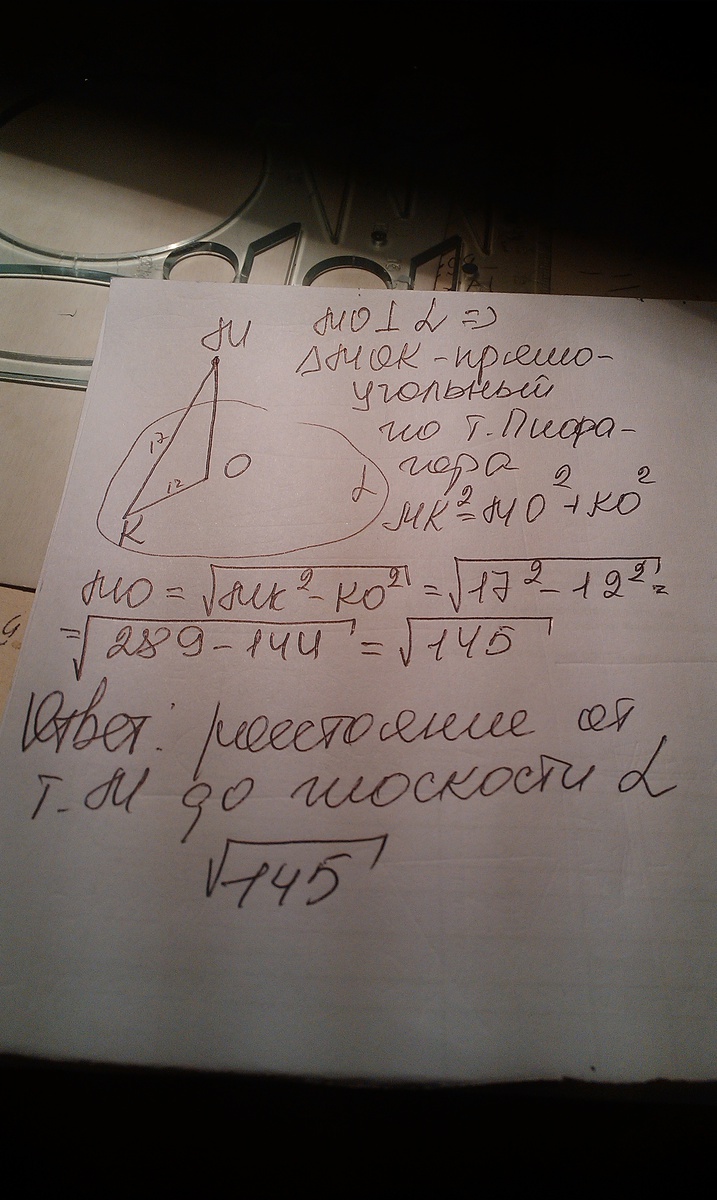 M
MO ⊥ α =>
△MOK - прямо-
угольный
по т. Пифа-
гора
MK² = MO² + KO²
17
12
O
K
α
MO = √MK² - KO² = √17² - 12² =
= √289 - 144 = √145
Ответ: расстояние от
т. M до плоскости α
√145